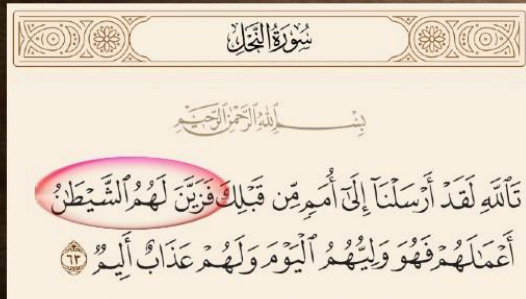 سُورَةُ النَّحْلِ
بِسْمِ اللَّهِ الرَّحْمَٰنِ الرَّحِيمِ
تَاللَّهِ لَقَدْ أَرْسَلْنَا إِلَىٰ أُمَمٍ مِّن قَبْلِكَ فَزَيَّنَ لَهُمُ الشَّيْطَٰنُ
أَعْمَٰلَهُمْ فَهُوَ وَلِيُّهُمُ الْيَوْمَ وَلَهُمْ عَذَابٌ أَلِيمٌ ٦٣